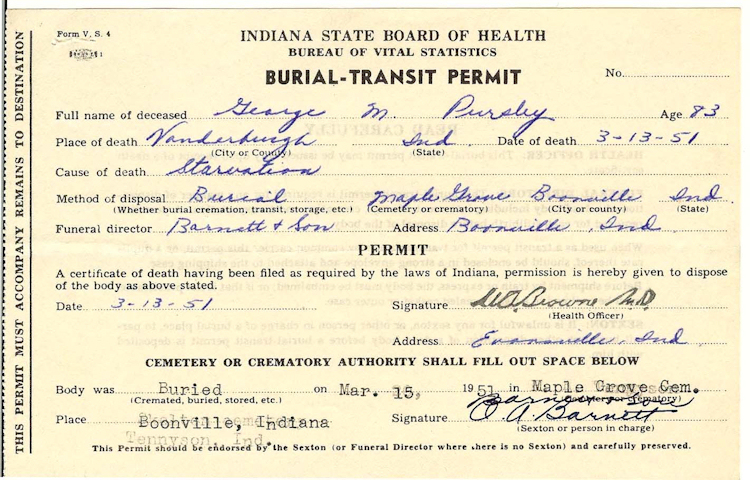 Form V. S. 4
INDIANA STATE BOARD OF HEALTH
BUREAU OF VITAL STATISTICS
BURIAL-TRANSIT PERMIT
No.
Full name of deceased George M. Pursley Age 83
Place of death Vanderburgh Ind Date of death 3-13-51
(City or County) (State)
Cause of death Starvation
Method of disposal Burial Maple Grove Boonville Ind
(Whether burial cremation, transit, storage, etc.) (Cemetery or crematory) (City or county) (State)
Funeral director Barnett & Son Address Boonville, Ind
PERMIT
A certificate of death having been filed as required by the laws of Indiana, permission is hereby given to dispose
of the body as above stated.
Date 3-13-51 Signature Browne M.D.
(Health Officer)
Address Evansville, Ind
CEMETERY OR CREMATORY AUTHORITY SHALL FILL OUT SPACE BELOW
Body was Buried on Mar. 15, 1951 in Maple Grove Cem.
(Cremated, buried, stored, etc.) (Cemetery or crematory)
Barnett & Son
Place Boonville, Indiana Signature O A Barnett
Tennyson, Ind. (Sexton or person in charge)
This Permit should be endorsed by the Sexton (or Funeral Director where there is no Sexton) and carefully preserved.
THIS PERMIT MUST ACCOMPANY REMAINS TO DESTINATION